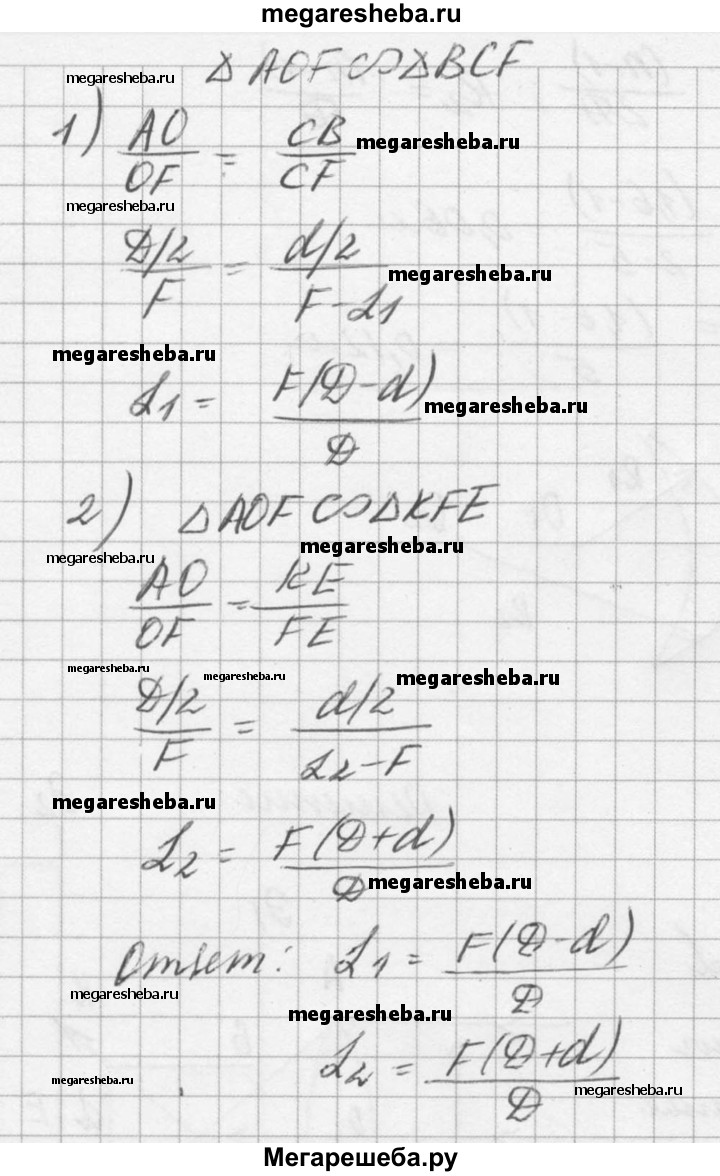 megaresheba.ru
Δ AOF ∽ Δ BCF
megaresheba.ru
1) AO/OF = CB/CF
megaresheba.ru
megaresheba.ru
(D/2)/F = (d/2)/(F-L1)
megaresheba.ru
megaresheba.ru
L1 = F(D-d)/D
megaresheba.ru
2) Δ AOF ∽ Δ KFE
megaresheba.ru
megaresheba.ru
AO/OF = KE/FE
megaresheba.ru megaresheba.ru megaresheba.ru
(D/2)/F = (d/2)/(L2-F)
megaresheba.ru
L2 = F(D+d)/D
megaresheba.ru
Ответ: L1 = F(D-d)/D
megaresheba.ru
megaresheba.ru
L2 = F(D+d)/D
megaresheba.ru
megaresheba.ru
Мегарешеба.ру